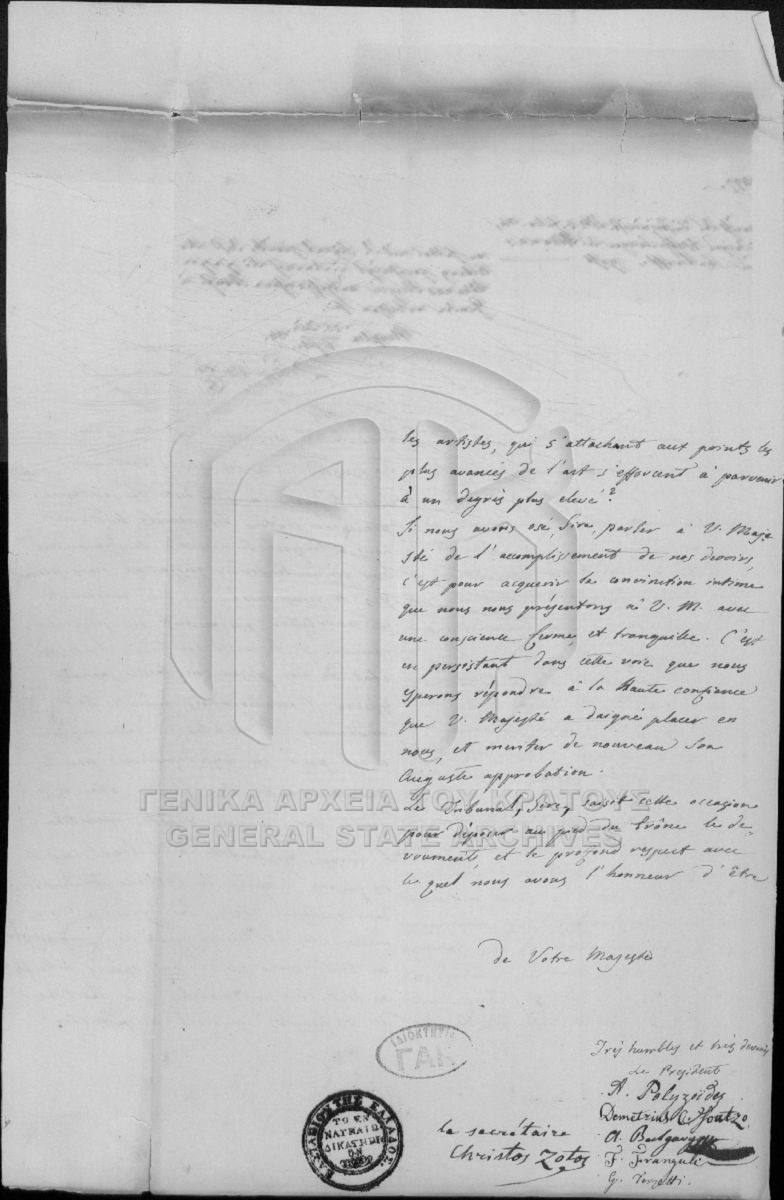 les artistes, qui s'attachant aux points les
plus avancés de l'art s'efforcent à parvenir
à un degrés plus elevé?
Si nous avons osé, Sire, parler à V. Maje
sté de l'accomplissement de nos devoirs,
c'est pour acquerir la conviction intime
que nous nous présentons à V. M. avec
une conscience ferme, et tranquille. C'est
en persistant dans cette voie que nous
esperons répondre à la Haute confiance
que V. Majesté a daigné placer en
nous, et meriter de nouveau Son
Auguste approbation.
Le Tribunal, Sire, saisit cette occasion
pour déposer au pied du trône le dé-
vouement, et le profond respect avec
le quel nous avons l'honneur d'être
de Votre Majesté
Très humbles et très devoués
Le President
A. Polyzoïdes
Demetrius C. Soutzo
le secrétaire
Christos Zotos
F. Franguli
G. Terzetti.
ΤΟ ΕΝ
ΝΑΥΠΛΙΩ
ΔΙΚΑΣΤΗΡΙ
ΟΝ
ΒΑΣΙΛΕΙΟΝ ΤΗΣ ΕΛΛΑΔΟΣ
ΙΔΙΟΚΤΗΣΙΑ
ΓΑΚ
ΓΕΝΙΚΑ ΑΡΧΕΙΑ ΤΟΥ ΚΡΑΤΟΥΣ
GENERAL STATE ARCHIVES